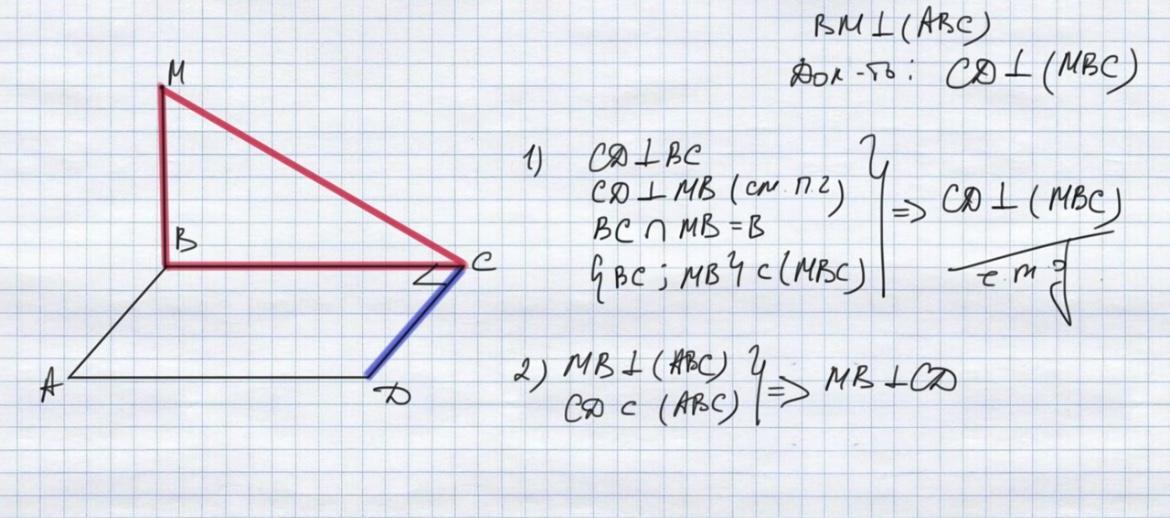 BM ⊥ (ABC)
Док-ть: CD ⊥ (MBC)
M
B
C
A
D
1) CD ⊥ BC
CD ⊥ MB (см. п2)
BC ∩ MB = B
{BC; MB} ⊂ (MBC)
} => CD ⊥ (MBC)
ч.т.д
2) MB ⊥ (ABC)
CD ⊂ (ABC)
} => MB ⊥ CD